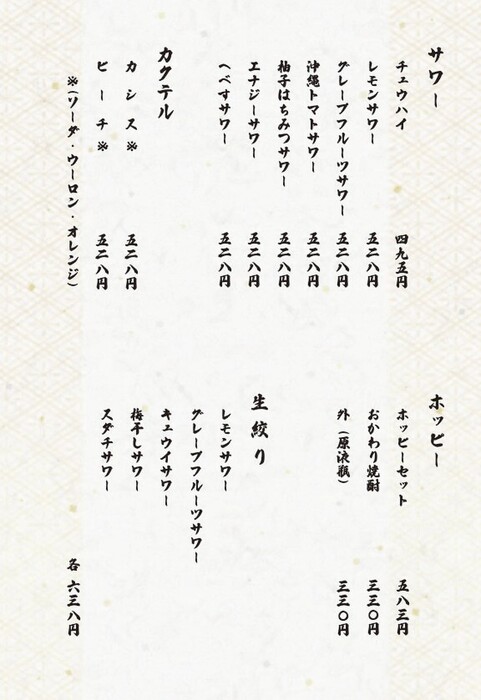 サワー
チュウハイ 四九五円
レモンサワー 五二八円
グレープフルーツサワー 五二八円
沖縄トマトサワー 五二八円
柚子はちみつサワー 五二八円
エナジーサワー 五二八円
へべすサワー 五二八円
カクテル
カシス※ 五二八円
ピーチ※ 五二八円
※(ソーダ・ウーロン・オレンジ)
ホッピー
ホッピーセット 五八三円
おかわり焼酎 三三〇円
外(原液瓶) 三三〇円
生絞り
レモンサワー
グレープフルーツサワー
キュウイサワー
梅干しサワー
スダチサワー
各 六三八円